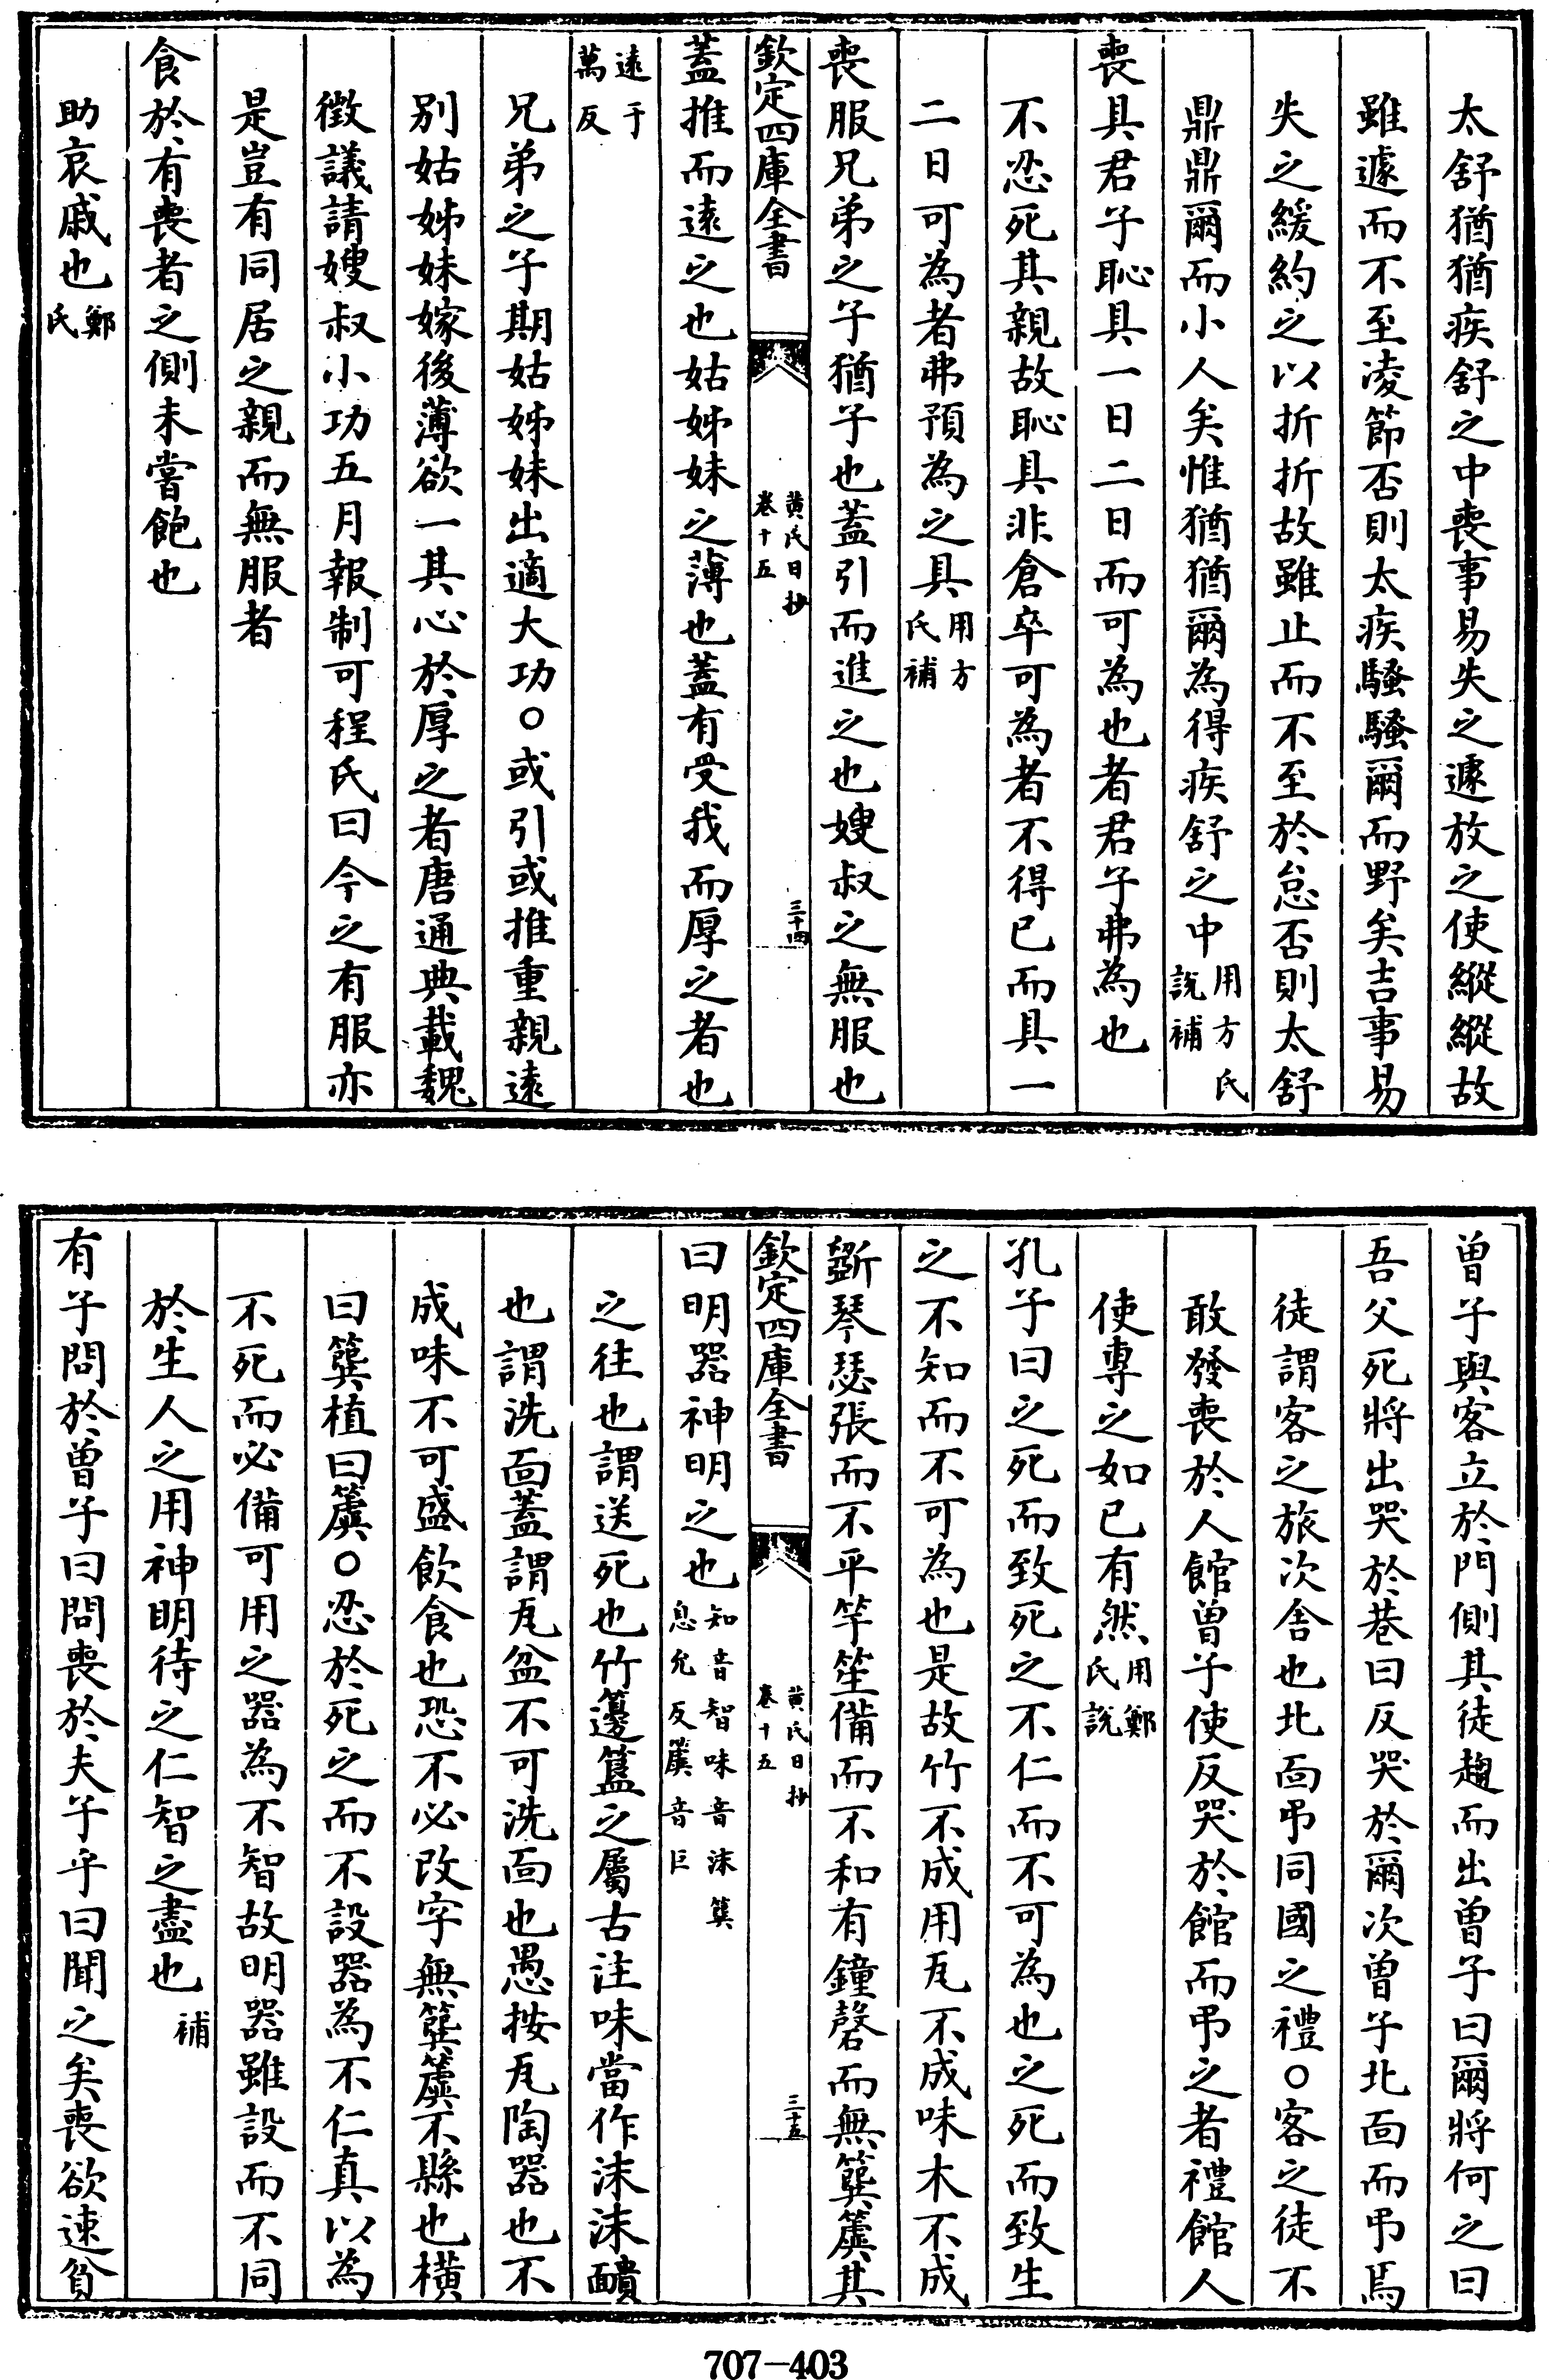 太舒猶猶疾舒之中喪事易失之遽放之使縱縱故
雖遽而不至凌節否則太疾騷騷爾而野矣吉事易
失之緩約之以折折故雖止而不至於怠否則太舒
鼎鼎爾而小人矣惟猶猶爾為得疾舒之中用方氏說補
喪具君子恥具一日二日而可為也者君子弗為也
不忍死其親故恥具非倉卒可為者不得已而具一
二日可為者弗預為之具用方氏補
喪服兄弟之子猶子也蓋引而進之也嫂叔之無服也
欽定四庫全書 黃氏日抄 卷十五 三十四
蓋推而遠之也姑姊妹之薄也蓋有受我而厚之者也
遠于萬反
兄弟之子期姑姊妹出適大功○或引或推重親遠
別姑姊妹嫁後薄欲一其心於厚之者唐通典載魏
徵議請嫂叔小功五月報制可程氏曰今之有服亦
是豈有同居之親而無服者
食於有喪者之側未嘗飽也
助哀戚也鄭氏
曾子與客立於門側其徒趨而出曾子曰爾將何之曰
吾父死將出哭於巷曰反哭於爾次曾子北面而弔焉
徒謂客之旅次舍也北面弔同國之禮○客之徒不
敢發喪於人館曾子使反哭於館而弔之者禮館人
使專之如已有然用鄭氏說
孔子曰之死而致死之不仁而不可為也之死而致生
之不知而不可為也是故竹不成用瓦不成味木不成
斵琴瑟張而不平竽笙備而不和有鐘磬而無簨簴其
欽定四庫全書 黃氏日抄 卷十五 三十五
曰明器神明之也知音智味音沬簨息允反簴音巨
之往也謂送死也竹籩簋之屬古注味當作沬沬靧
也謂洗面蓋謂瓦盆不可洗面也愚按瓦陶器也不
成味不可盛飲食也恐不必改字無簨簴不縣也橫
曰簨植曰簴○忍於死之而不設器為不仁真以為
不死而必備可用之器為不智故明器雖設而不同
於生人之用神明待之仁智之盡也補
有子問於曾子曰問喪於夫子乎曰聞之矣喪欲速貧
707-403